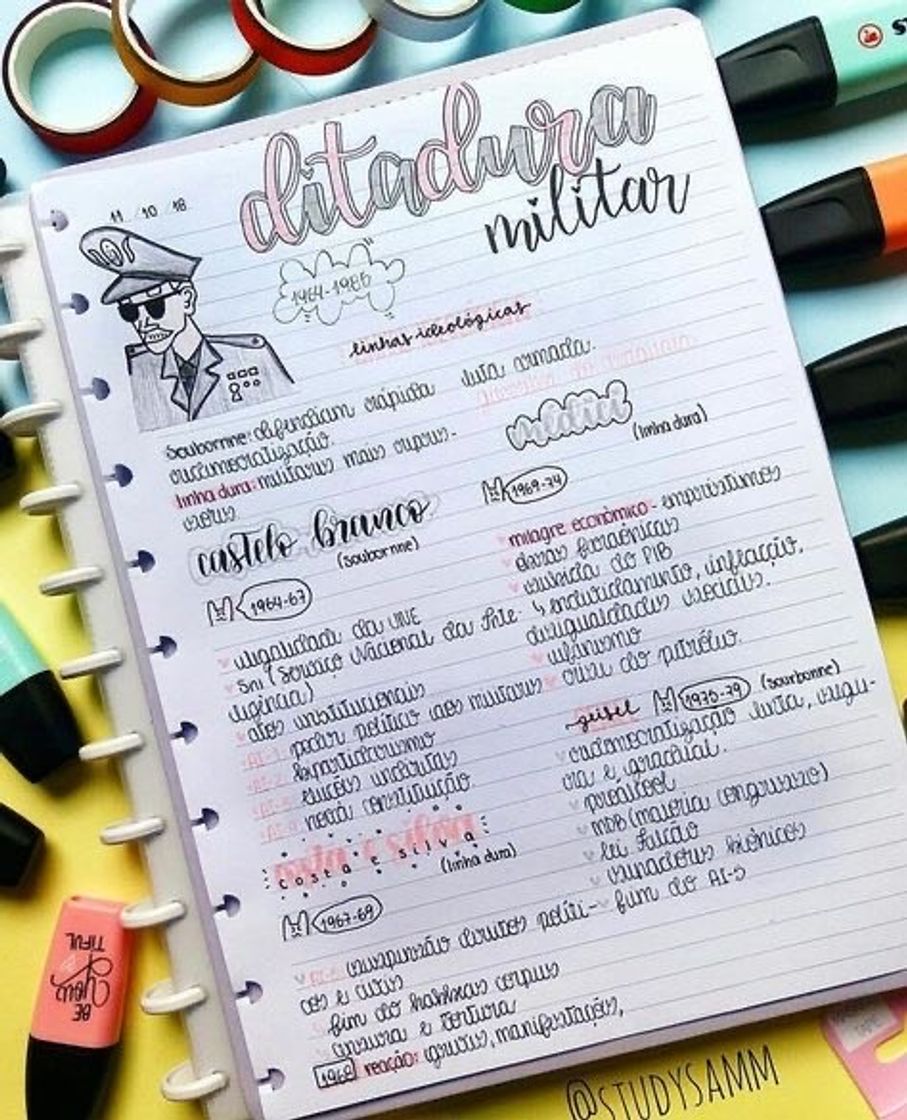 11 / 10 / 18
ditadura
militar
1964-1985
linhas ideológicas
Sourbonne: defendiam rápida
redemocratização.
linha dura: militares mais rigoro-
sos
castelo branco
(sourbonne)
1964-67
ilegalidade da UNE
SNI (Serviço Nacional da Inte-
ligência)
atos institucionais
AI-1: poder político aos militares
AI-2: bipartidarismo
AI-3: eleições indiretas
AI-4: nova constituição
costa e silva
costa e silva
(linha dura)
1967-69
AI-5: suspensão direitos políti-
cos e civis
fim do habeas corpus
censura e tortura
1968 reação: greves, manifestações,
luta armada.
médici
(linha dura)
1969-74
milagre econômico - empréstimos
obras faraônicas
subida do PIB
↳ endividamento, inflação,
desigualdades sociais.
ufanismo
crise do petróleo.
geisel
1975-79
(sourbonne)
redemocratização lenta, segu-
ra e gradual.
proálcool
MDB (maioria congresso)
lei falcão
senadores biônicos
fim do AI-5
@STUDYSAMM
BE
YOU
TIFUL